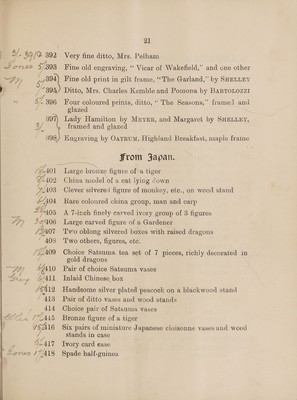 21
392 Very fine ditto, Mrs. Pelham
393 Fine old engraving, " Vicar of Wakefield," and one other
394 Fine old print in gilt frame, "The Garland," by SHELLEY
395 Ditto, Mrs. Charles Kemble and Pomona by BARTOLOZZI
396 Four coloured prints, ditto, " The Seasons," framed and
glazed
397 Lady Hamilton by MEYER, and Margaret by SHELLEY,
framed and glazed
398 Engraving by OATRUM, Highland Breakfast, maple frame
From Japan.
401 Large bronze figure of a tiger
402 China model of a cat lying down
403 Clever silvered figure of monkey, etc., on wood stand
404 Rare coloured china group, man and carp
405 A 7-inch finely carved ivory group of 3 figures
406 Large carved figure of a Gardener
407 Two oblong silvered boxes with raised dragons
408 Two others, figures, etc.
409 Choice Satsuma tea set of 7 pieces, richly decorated in
gold dragons
410 Pair of choice Satsuma vases
411 Inlaid Chinese box
412 Handsome silver plated peacock on a blackwood stand
413 Pair of ditto vases and wood stands
414 Choice pair of Satsuma vases
415 Bronze figure of a tiger
416 Six pairs of miniature Japanese cloisonne vases and wood
stands in case
417 Ivory card case
Jones 418 Spade half-guinea